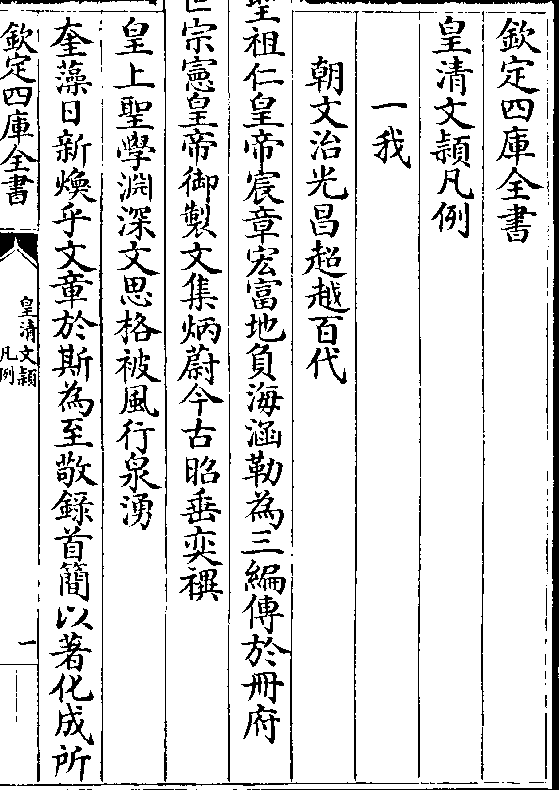 欽定四庫全書
皇清文穎凡例
一我
朝文治光昌超越百代
聖祖仁皇帝宸章宏富地負海涵勒為三編傳於冊府
世宗憲皇帝御製文集炳蔚今古昭垂奕禩
皇上聖學淵深文思格被風行泉湧
奎藻日新煥乎文章於斯為至敬錄首簡以著化成所
欽定四庫全書
皇清文穎
凡例
一